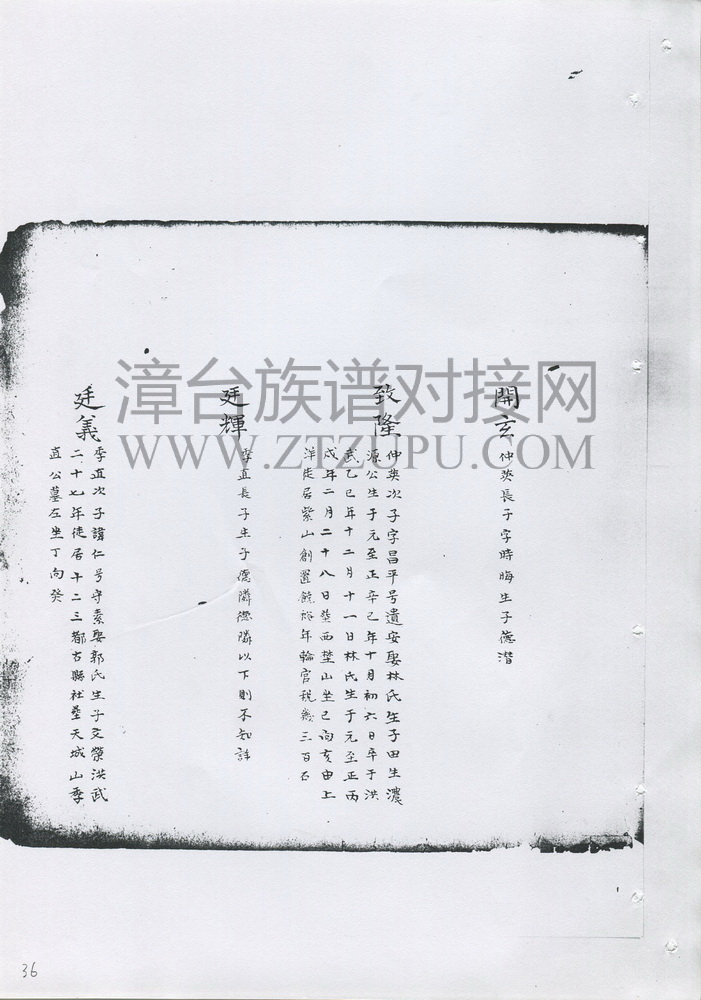 開玄
仲英長子字時晦生子德潛
致隆
仲英次子字昌平号遺安娶林氏生子田生濃
源公生于元至正辛己年十月初六日卒于洪
武乙巳年十二月十一日林氏生于元至正丙
戍年二月二十八日塟西埜山坐己向亥由上
洋徒居紫山創置饒裕年輪官税幾三百石
廷輝
季直長子生子德隣德隣以下則不知詳
廷義
季直次子諱仁号守素娶郭氏生子文榮洪武
二十七年徒居廿二三都古縣社塟天城山季
直公墓左坐丁向癸
漳台族谱对接网
WWW.ZTZUPU.COM
36